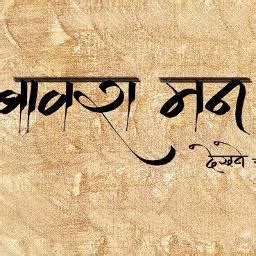 बावरा मन
देखने